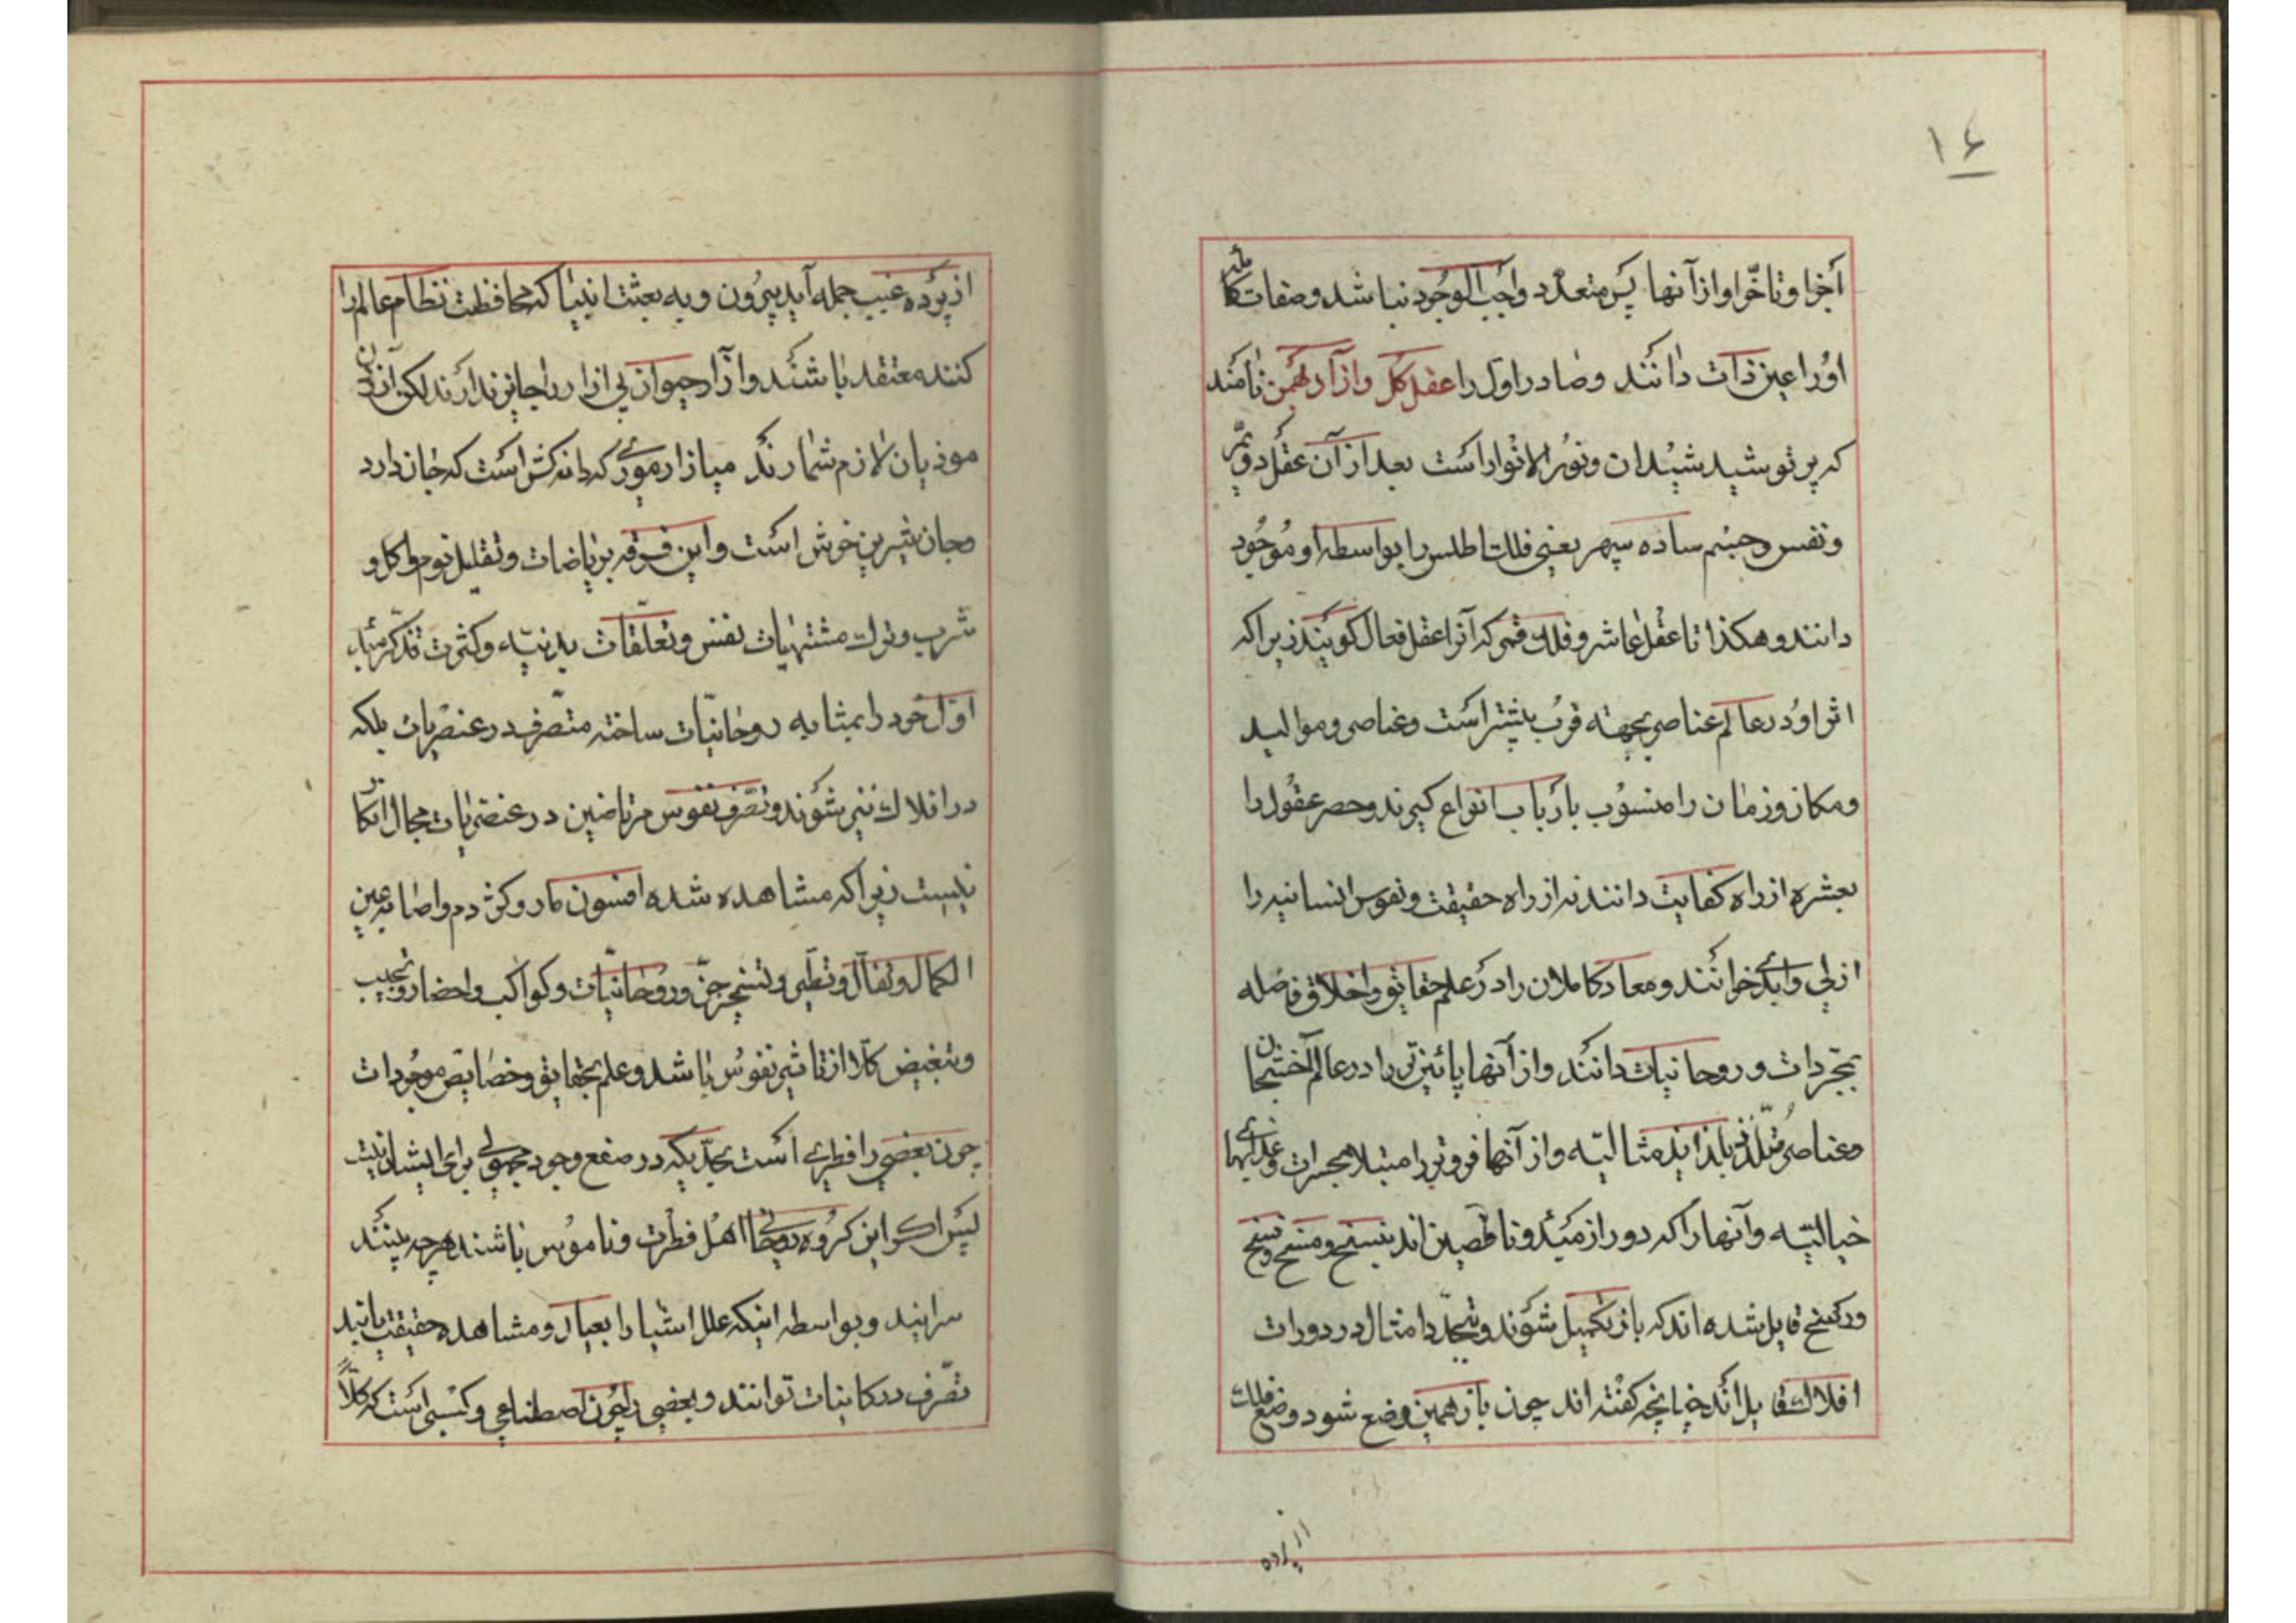 ۱۶
اجزا و تاخر او از آنها پس متعدد واجب الوجود نباشد و صفات کمالیه
او را عین ذات دانند و صادر اول را عقل کل و از آن بهمن نامند
که پرتو شید شیدان و نور الانوار است بعد از آن عقل دویم
و نفس و جسم ساده سپهر یعنی فلک اطلس را بواسطه او موجود
دانند و هکذا تا عقل عاشر و فلک قمر که آنرا عقل فعال کویند زیرا که
اثر او در عالم عناصر بجهته قرب بیشتر است و عناصر و موالید
و مکان و زمان را منسوب بارباب انواع کیرند و حصر عقول را
بعشره از راه کفایت دانند نه از راه حقیقت و نفوس انسانیه را
ازلی و ابدی خوانند و معاد کاملان را در علم حقایق و اخلاق فاضله
بمجردات و روحانیات دانند و از آنها پائین تر را در عالم
و عناصر متلذذ بلذایذ مثالیه و از آنها فروتر را مبتلا بحسرات و عذابهای
خیالیه و آنها را که دور از مبدء و ناقصین اند بنسخ و مسخ و فسخ
و رسخ قایل شده اند که باز تکمیل شوند و بتجدد امثال در دورات
افلاک قایل اند چنانچه کفته اند چون باز همین وضع شود وضع فلک
از پرده
از پرده غیب جمله آید بیرون و به بعثت انبیا که محافظت نظام عالم را
کنند معتقد باشند و آزار حیوان بی ازار را جایز ندارند لکن
موذیان لازم شمارند میازار موری که دانه کش است که جان دارد
و جان شیرین خوش است و این فرقه بریاضات و تقلیل نوم و اکل و
شرب و ترک مشتهیات نفس و تعلقات بدنیه و کثرت تذکر مبداء
اول خود را بمثابه روحانیات ساخته متصرف در عنصریات بلکه
در افلاک نیز شوند و تصرف نفوس مرتاضین در عنصریات مجال انکار
نیست زیرا که مشاهده شده افسون مار و کژدم و اصابه عین
الکمال و تفأل و تطیر و تسخیر جن و روحانیات و کواکب و احضار و تحبیب
و تبغیض کلا از تاثیر نفوس باشد و علم بحقایق و خصایص موجودات
چون بعضی را فطری است بحدیکه در صقع وجود مجهولی برای ایشان نیست
پس اکر این کروه روحانی اهل فطرت و ناموس باشند هرچه بینند
سرایند و بواسطه اینکه علل اشیا را بعیان و مشاهده حقیقت یابند
تصرف در کاینات توانند و بعضی را چون اصطناعی و کسبی است که کلاً